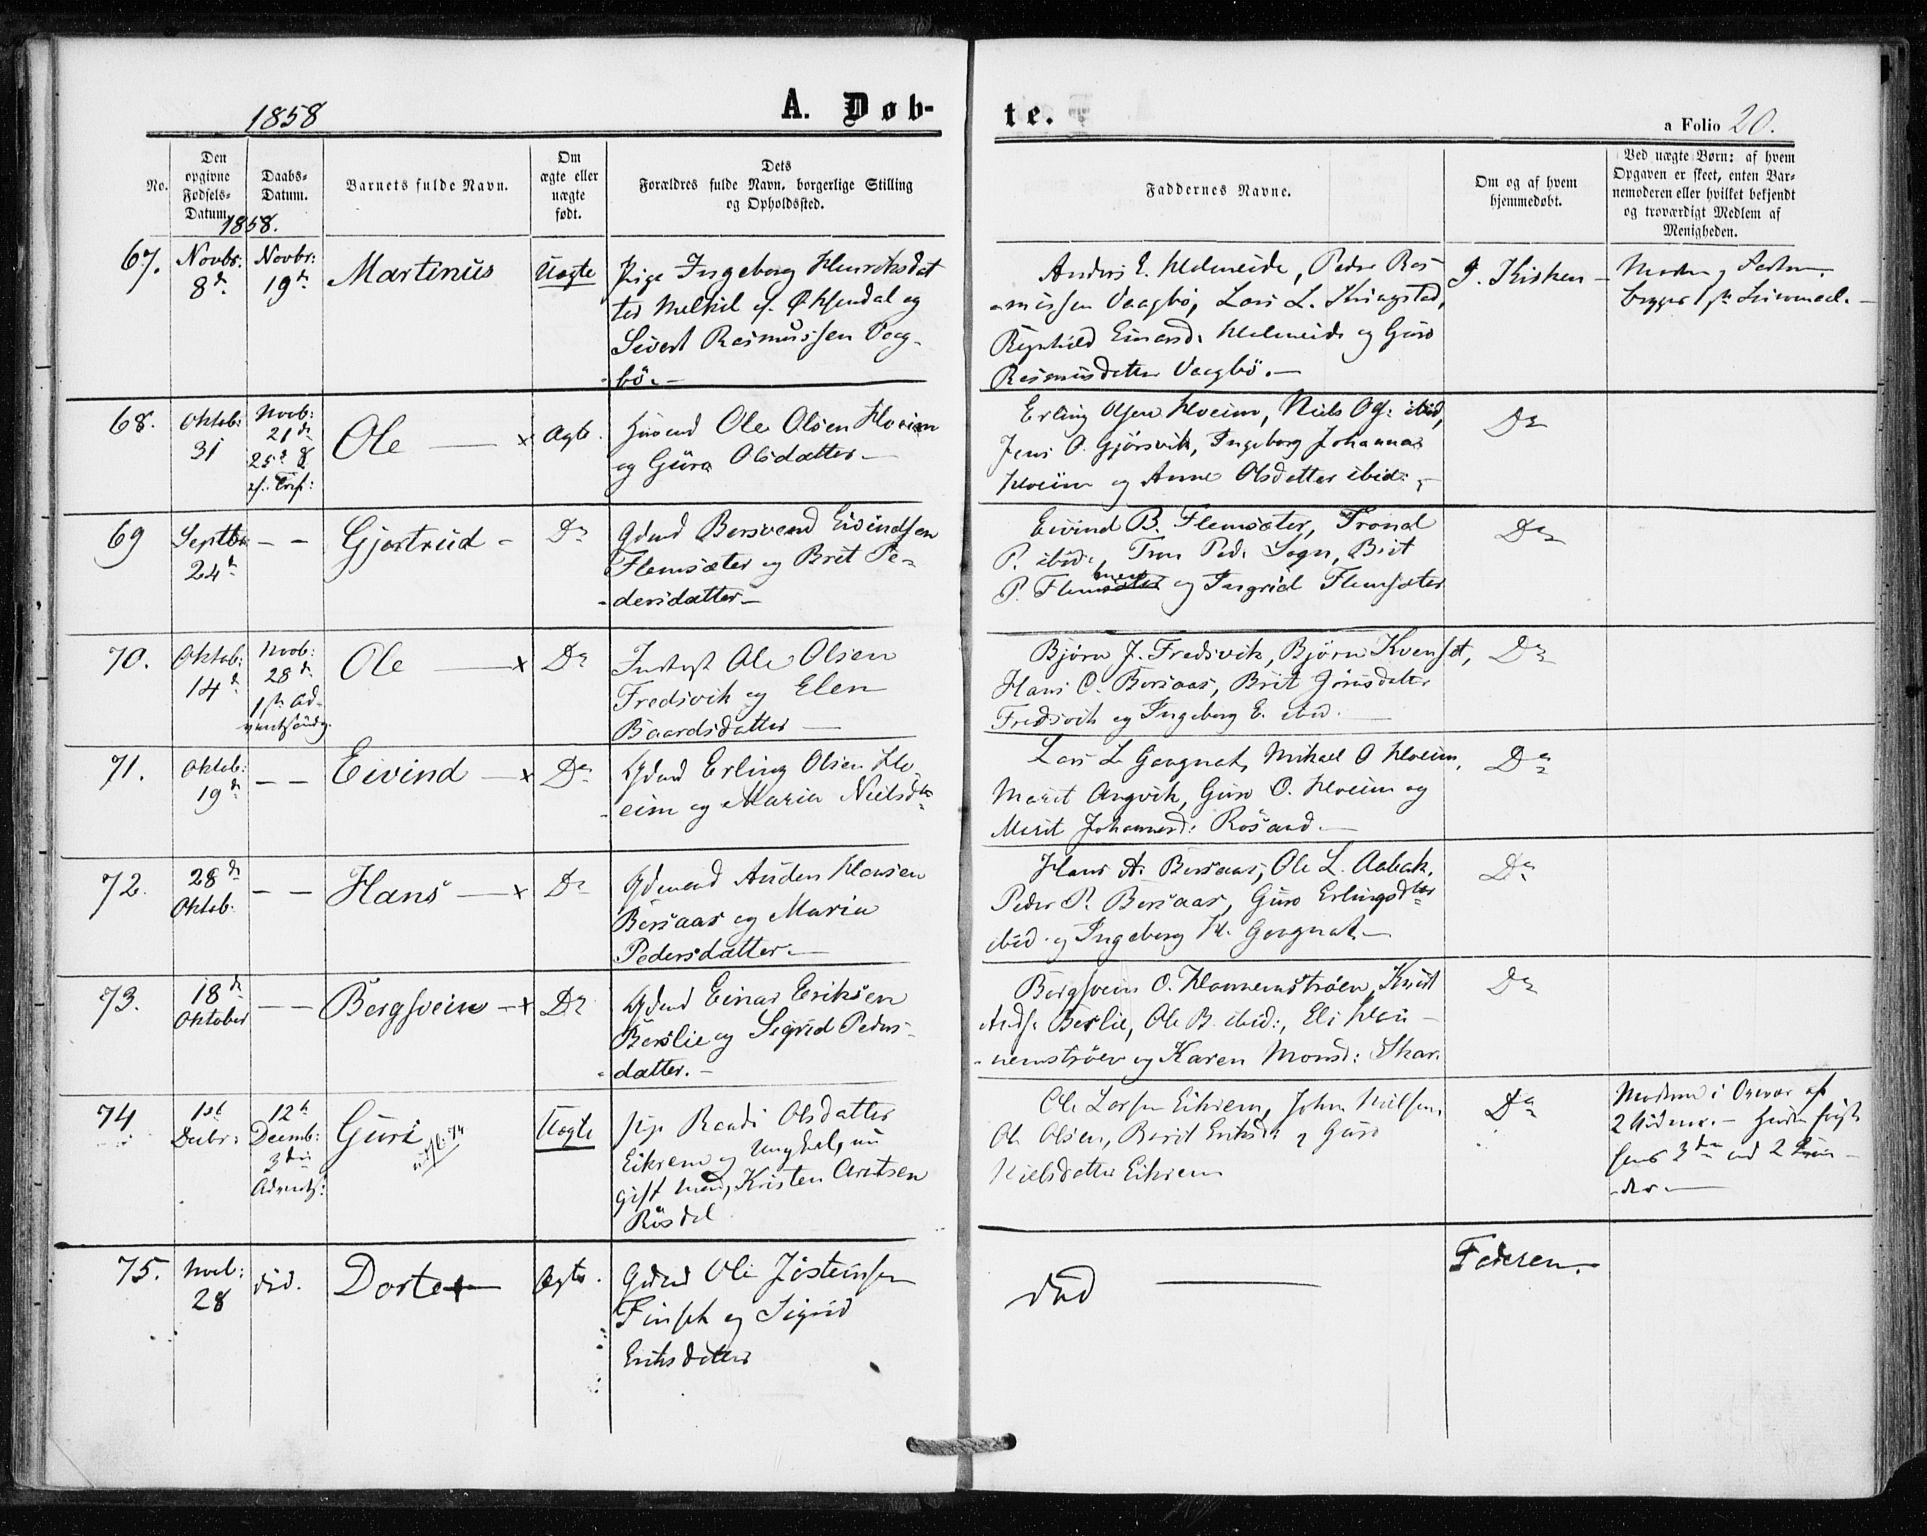 1858
A. Døb-
te.
a Folio 20.
No.
Den
opgivne
Fødsels-
Datum.
Daabs-
Datum.
Barnets fulde Navn.
Om
ægte eller
uægte
født.
Dets
Forældres fulde Navn, borgerlige Stilling
og Opholdssted.
Faddernes Navne.
Om og af hvem
hjemmedøbt.
Ved uægte Børn: af hvem
Opgaven er skeet, enten Bar-
nemoderen eller hvilket bekjendt
og troværdigt Medlem af
Menigheden.
1858.
67.
Novbr:
8de
Novbr:
19de
Martinus
Uægte
Pige Ingeborg Henriksdat
ter Melkil af Øksendal og
Sivert Rasmussen Vaag-
bö.-
Anders E. Helmeide, Peder Ras-
-mussen Vaagbö, Lars L. Kringstad,
Ragnhild Einarsd: Helmeide og Guro
Rasmusdatter Vaagbö.-
I. Kirken
68.
Oktob:
31
Novb:
21de
Ole
Ægte.
Ole Olsen Hoeim
og Guro Olsdatter-
Erling Olsen Hoeim, Niels Ols: ibid,
Jens O. Gjörsvik, Ingeborg Johannes
Hoeim og Anne Olsdatter ibid:
Do
69
Septbr
24de
- -
Gjertrud -
Do
Gdmd Bersvend Eivindsen
Flemsæter og Brit Pe-
-dersdatter-
Eivind B. Flemsæter, Trond
P. ibid:, Tron Ped: Sogn, Brit
P. Flemsæter og Ingrid Flemsæter
Do
70.
Oktob:
14de
Novb:
28de
1ste Ad-
ventsöndg.
Ole
Do
Indst Ole Olsen
Fredsvik og Elen
Baardsdatter
Björn J. Fredsvik, Björn Kvenset,
Hans O. Bersaas, Brit Jörnsdatter
Fredsvik og Ingeborg E. ibid.
Do
71.
Oktob:
19de
- -
Eivind
Do
Gdmd Erling Olsen Ho
-eim og Maria Nielsdtr
Lars L Gaagnat, Mikael O Hoeim,
Marit Angvik, Guro O. Hoeim og
Marit Johannesd: Rösand.-
Do
72.
28de
Oktob.
- -
Hans
Do
Gdmand Auden Hansen
Bersaas og Maria
Pedersdatter.-
Hans A. Bersaas, Ole L. Aabak,
Peder P. Bersaas, Guro Erlingsdtr
ibid. og Ingeborg H. Gaagnat.-
Do
73.
18de
Oktober
- -
Bergsvein
Do
Gdmd Einar Eriksen
Berslie og Sigrid Peders-
-datter.-
Bergsvein O. Hammemströen, Knut
Ands: Berslie, Ole B. ibid:, Eli Ham-
-nemströen og Karen Monsd: Skar.
Do
74
1ste
Decbr:
12te
Decemb:
3die
Advents:
Guri
Uægte
Pige Randi Olsdatter
Eikrem og Ungkarl, nu
gift Mand, Kristen Arntsen
Rösdal
Ole Larsen Eikrem, John Nielsen,
Ole Olsen, Berit Eriksdtr og Guro
Nielsdatter Eikrem
Do
75.
Novb:
28
död.
Dorte
Ægte.
Gdmd Ole Jösteinsen
Finset og Sigrid
Eriksdatter
död
Faderen.-